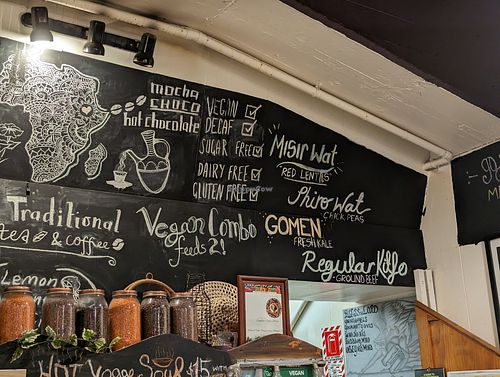 mocha
choco
hot chocolate
VEGAN
DECAF
SUGAR FREE
DAIRY FREE
GLUTEN FREE
Misir Wat
RED LENTILS
Shiro Wat
CHICK PEAS
GOMEN
FRESH KALE
Regular Kitfo
- GROUND BEEF
Traditional
tea & coffee
Vegan Combo
feeds 2!
Lemon
HOT Veggie Soup $15 WITH
VEGAN